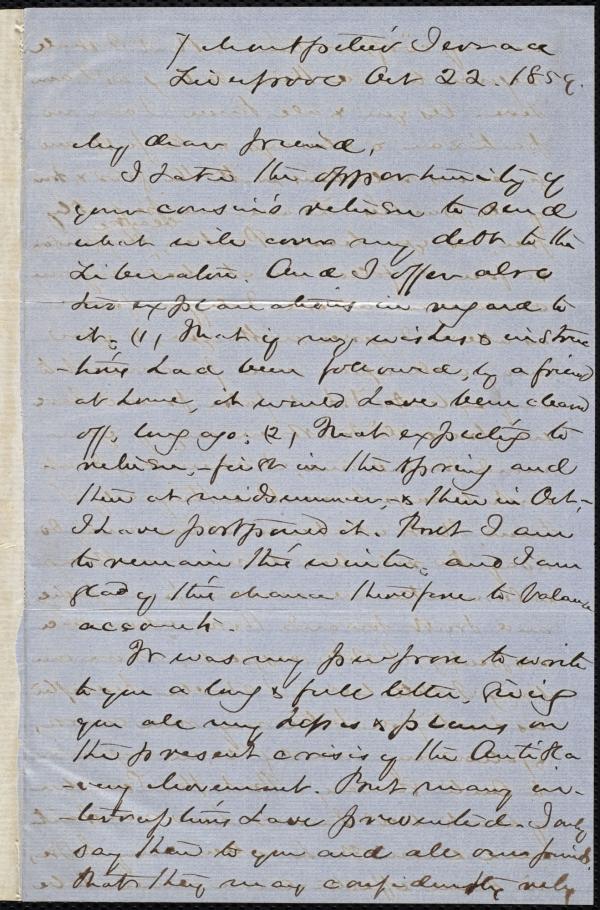 7 Montpelier Terrace
Liverpool Oct 22. 1859.
My dear friend,
I take the opportunity of
your cousin's return to send
what will cover my debt to the
Liberator. And I offer also
two explanations in regard to
it; (1, That if my wishes & instruc
-tions had been followed, by a friend
at home, it would have been cleared
off, long ago; (2, That expecting to
return, - first in the Spring and
then at midsummer, - & then in Oct,-
I have postponed it. But I am
to remain this winter; and I am
glad of this chance therefore to balance
accounts.
It was my purpose to write
to you a long & full letter, giving
you all my hopes & plans on
the present crisis of the AntiSla
-very Movement. But many in-
-terruptions have prevented. I only
say then to you and all our friends,
that they may confidently rely